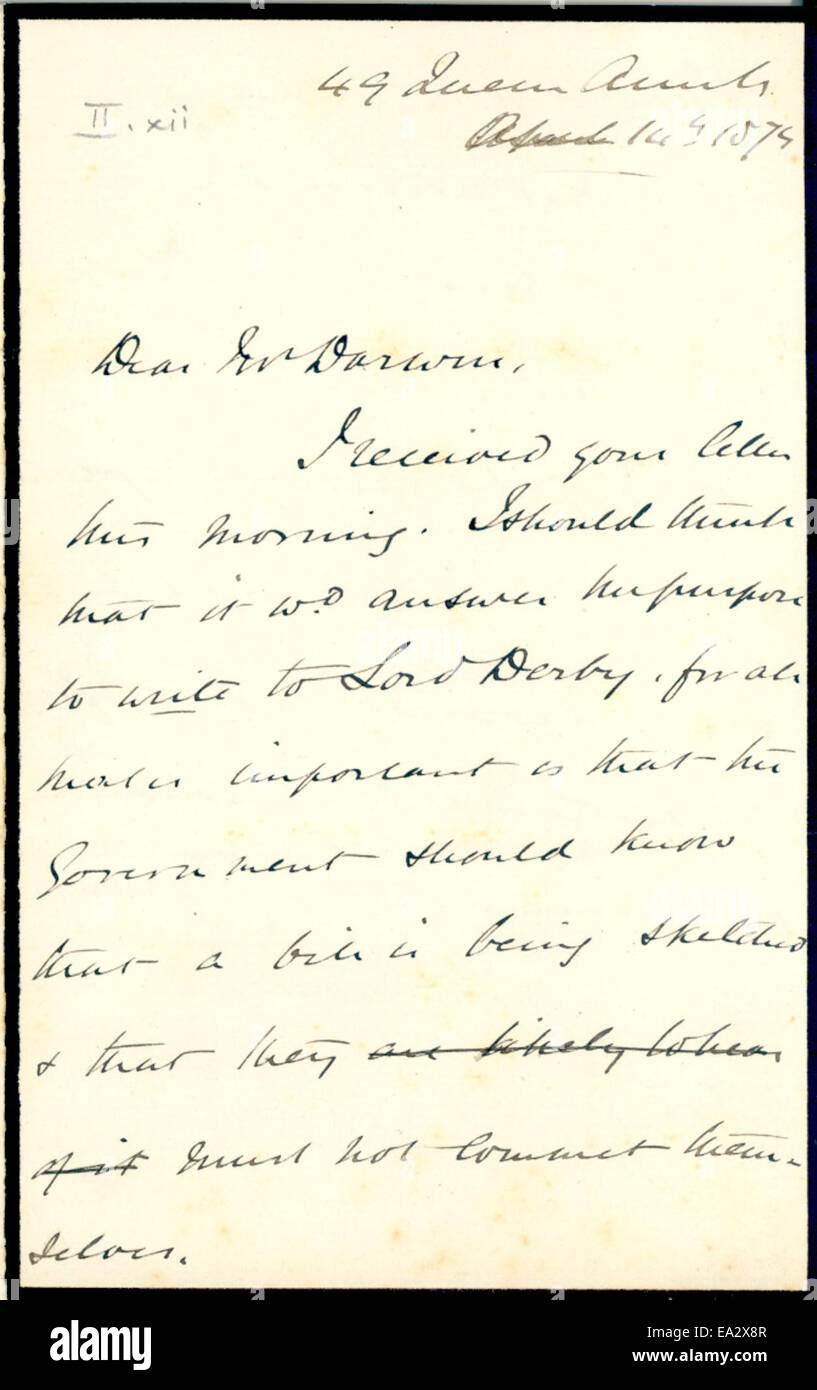 49 Queen Anne St.
II. xii
April 14th 187
Dear Mr Darwin,
I received your letter
this morning. I should think
that it wd answer the purpose
to write to Lord Derby, for all
that is important is that the
Government should know
that a bill is being sketched
& that they are likely to hear
of it must not commit them-
selves.
alamy
Image ID: EA2X8R
www.alamy.com